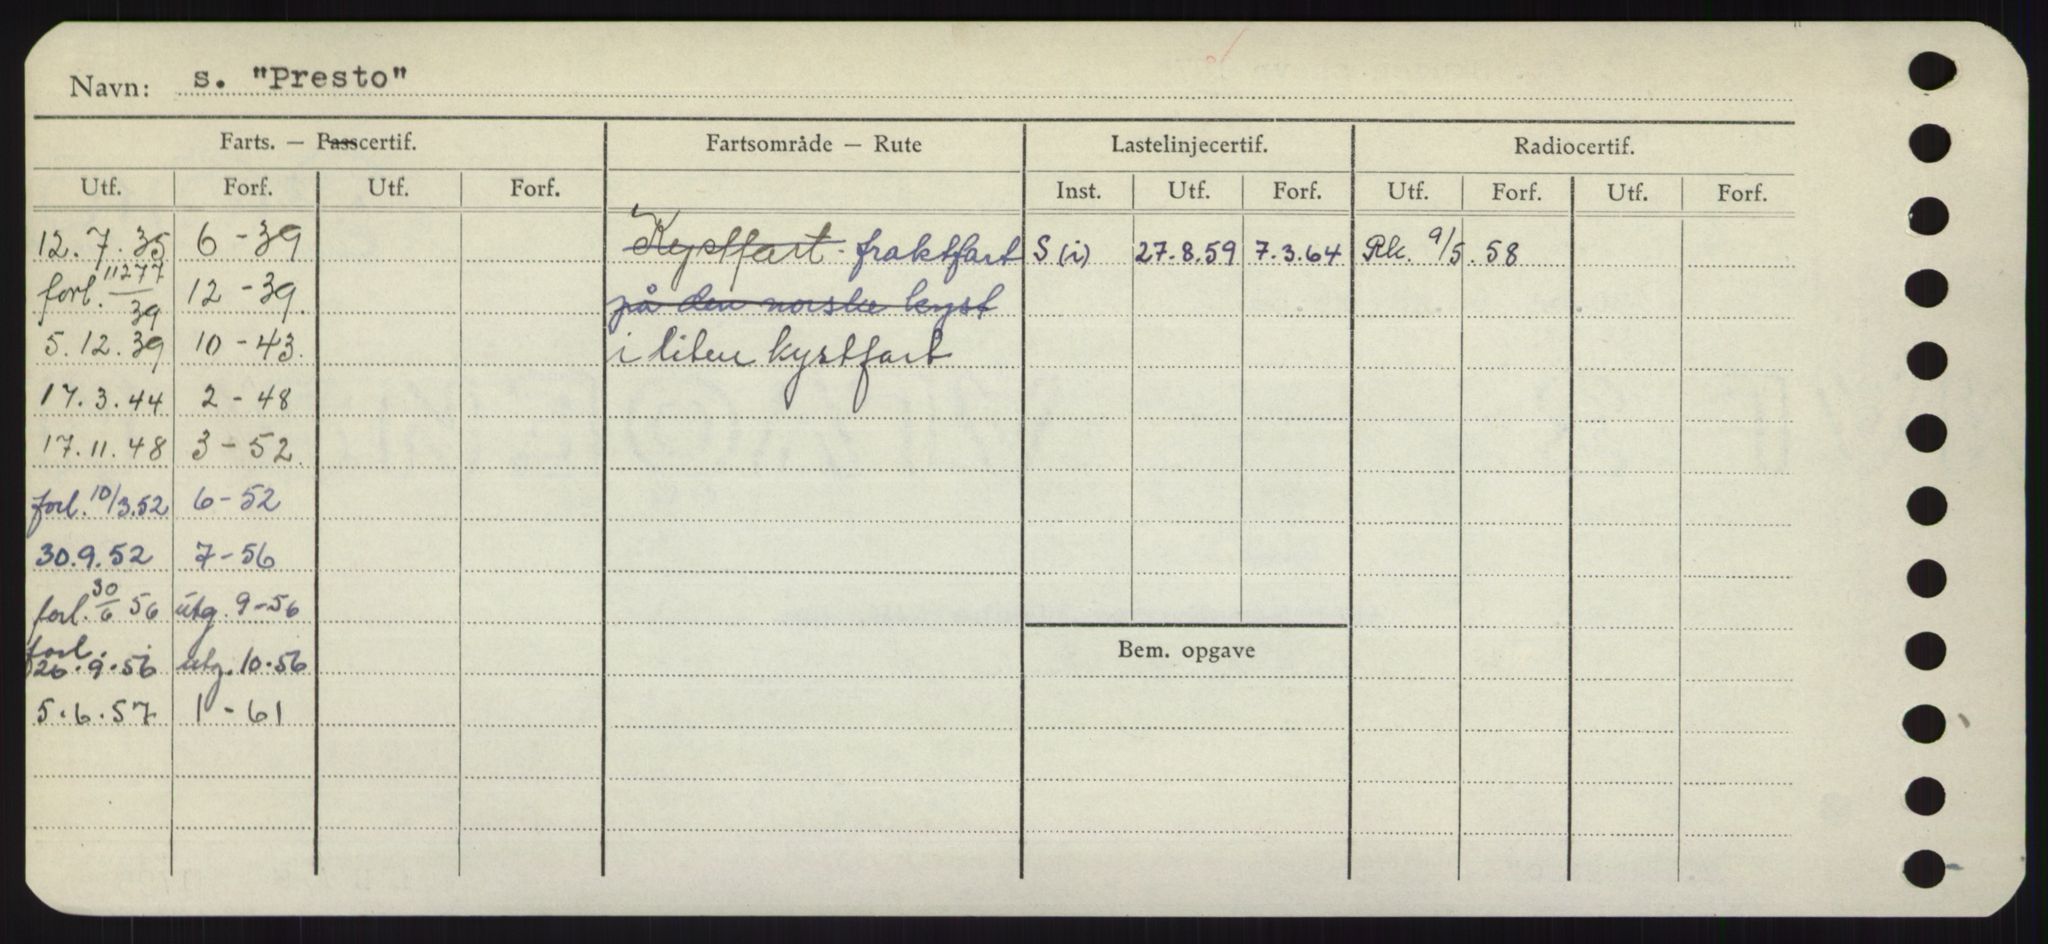 Navn: s. "Presto"
Farts. — Passcertif. Fartsområde — Rute Lastelinjecertif. Radiocertif.
Utf. Forf. Utf. Forf. Inst. Utf. Forf. Utf. Forf. Utf. Forf.
12.7.35 6-39 Kystfart. fraktfart S (i) 27.8.59 7.3.64 Rk. 9/5.58
forl. 39 12-39. på den norske kyst
5.12.39 10-43. i liten kystfart
17.3.44 2-48
17.11.48 3-52.
forl. 10/3.52 6-52
30.9.52 7-56
forl. 30/6 56 utg. 9-56
forl.
26.9.56 utg. 10.56
Bem. opgave
5.6.57 1-61